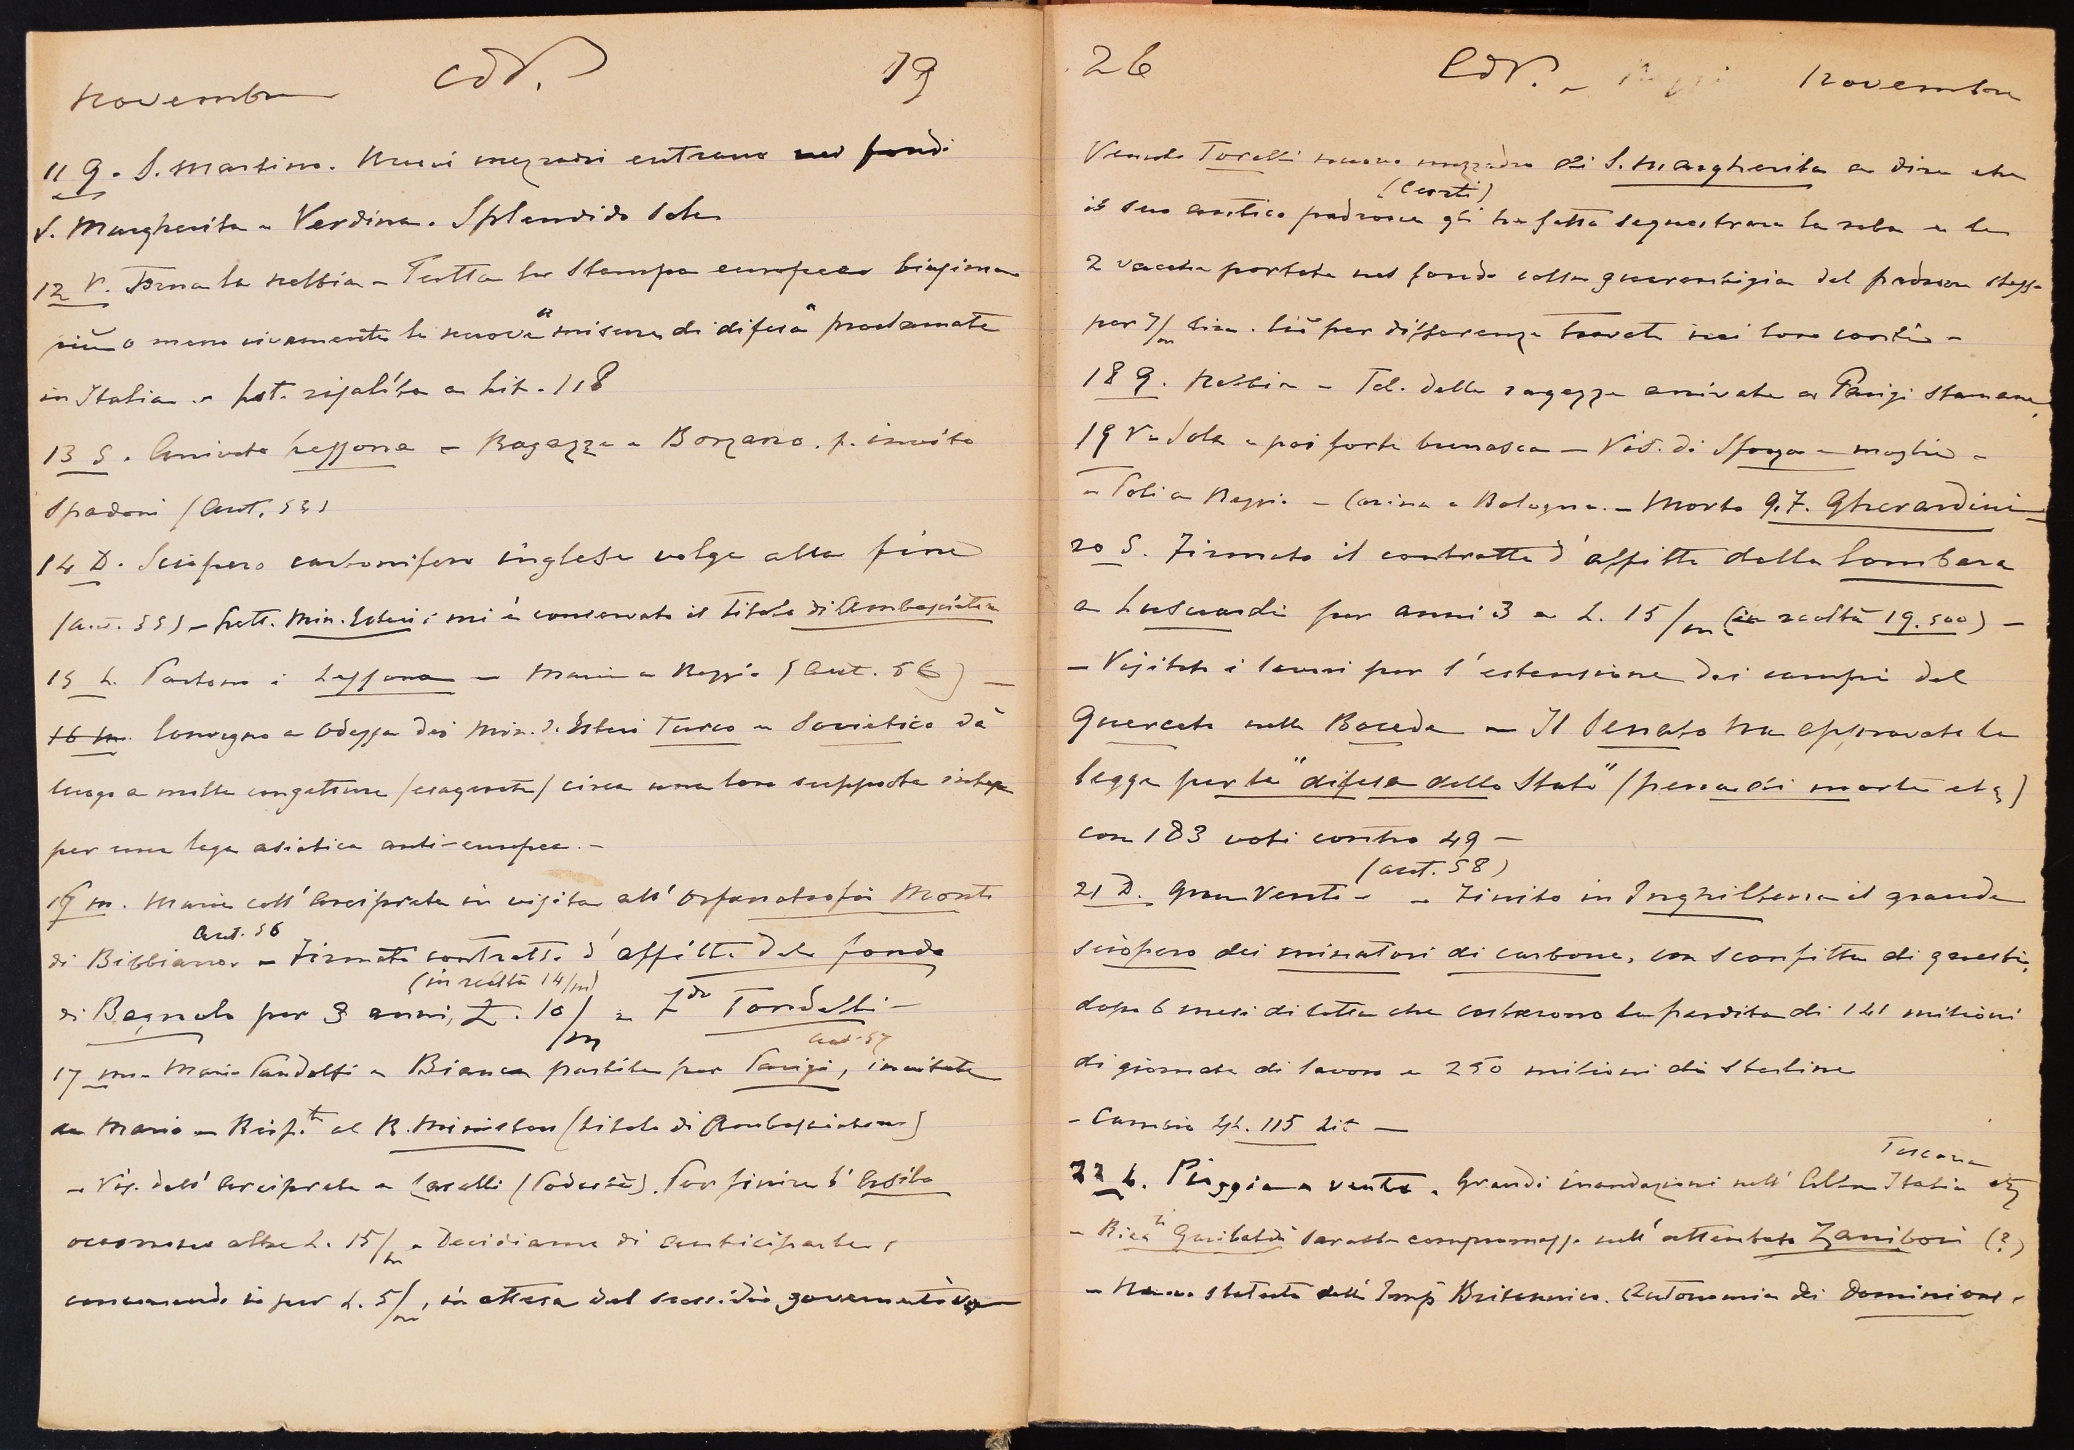 Novembre CdV. 19
11 G. S. Martino. Nuovi mezzadri entrano nei fondi
S. Margherita e Verdina. Splendido sole
12 V. Torna la nebbia - Tutta la stampa europea biasima
più o meno vivamente le nuove "misure di difesa" proclamate
in Italia. - risalita a Lit. 118
13 S. Arrivata Lessona - Ragazze a Borzano. p. invito
Spadoni (Aut. 53)
14 D. Sciopero carbonifero inglese volge alla fine
(Aut. 55) - Lett. Min. Esteri: mi è conservato il titolo di Ambasciatore
15 L. Partono i Lessona - Maria a Reggio (Aut. 56) -
16 M. Convegno a Odessa dei Min. d. Esteri Turco e Sovietico dà
luogo a molte congetture (esagerate) circa una loro supposta intesa
per una lega asiatica anti-europea. -
16 M. Maria coll'Arciprete in visita all'Orfanotrofio Monti
di Bibbiano. Aut. 56 - Firmato contratto d'affitto del fondo
(in realtà 14/m)
di Bagnolo per 3 anni, L. 10/m a Tondelli -
Aut. 57
17 M. Maria Pandolfi e Bianca partite per Parigi, invitate
da Mario - Risp.to al R. Ministero (titolo di Ambasciatore)
- Vis. dell'Arciprete e Casalli (Podestà). Per finire l'Asilo
occorrono altre L. 15/m - Decidiamo di anticiparle,
concorrendo io per L. 5/m, in attesa del sussidio governativo
26 CdV. - Novembre
Venuto Torelli nuovo mezzadro di S. Margherita a dire che
(Corti)
il suo antico padrone gli ha fatto sequestrare la roba e le
2 vacche portate nel fondo colla guarentigia del padrone stesso
per 7/m lire. Ciò per differenze trovate nei loro conti -
18 G. Nebbia - Tel. delle ragazze arrivate a Parigi stamane
19 V. Sole e poi forte burrasca - Vis. di Sforza e moglie -
- Poli a Reggio - Corina a Bologna - Morto G. F. Gherardini -
20 S. Firmato il contratto d'affitto della Lombara
a Lusuardi per anni 3 a L. 15/m (in realtà 19.500) -
- Visitato i lavori per l'estensione dei campi del
Querceto nella Boceda - Il Senato ha approvato la
legge per la "difesa dello Stato" (pena di morte etc)
con 183 voti contro 49 -
(Aut. 58)
21 D. Gran vento - - Finito in Inghilterra il grande
sciopero dei minatori di carbone, con sconfitta di questi,
dopo 6 mesi di lotta che costarono la perdita di 141 milioni
di giornate di lavoro e 250 milioni di sterline
- Cambio Lst. 115 Lit -
Toscana
22 L. Pioggia e vento. Grandi inondazioni nell'Alta Italia etc
- Ricc.ti Garibaldi sarebbe compromesso nell'attentato Zaniboni (?)
- Nuovo statuto dell'Imp. Britannico. Autonomia dei Dominions.